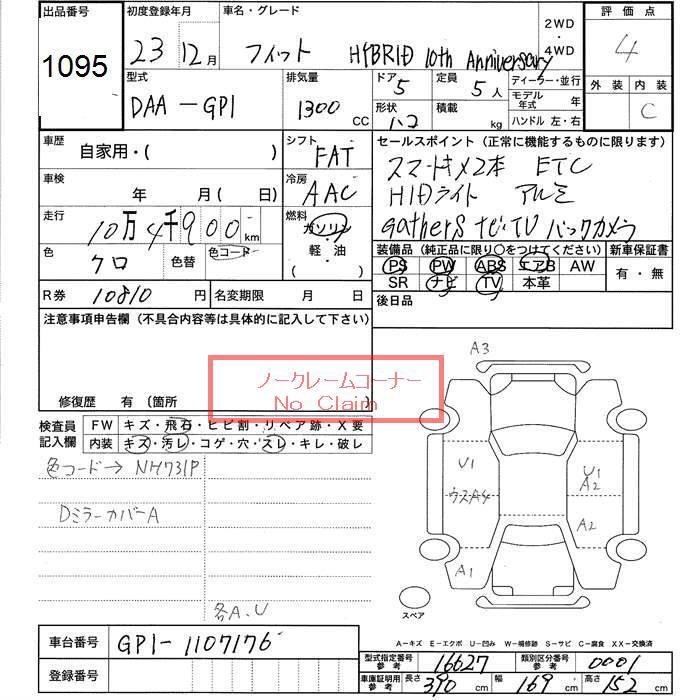 出品番号
1095
初度登録年月
23 12月
車名・グレード
フィット HYBRID 10th Anniversary
2WD
・
4WD
評価点
4
外装 内装
C
型式
DAA-GP1
排気量
1300 CC
ドア 5
定員 5人
形状 ハコ
積載 kg
ディーラー・並行
モデル年式 年
ハンドル 左・右
車歴
自家用・( )
シフト
FAT
セールスポイント (正常に機能するものに限ります)
スマートキメ2本 ETC
HIDライト アルミ
gathers ナビ・TV バックカメラ
車検
年 月 (日)
冷房
AAC
走行
10万4千900km
燃料
ガソリン
・
軽・油
・
色
クロ
色替
色コード
装備品 (純正品に限り○をつけてください)
新車保証書
PS PW ABS エアB AW
SR ナビ TV 本革
有・無
R券 10810円
名変期限 月 日
後日品
注意事項申告欄 (不具合内容等は具体的に記入して下さい)
ノークレームコーナー
No Claim
修復歴 有 〔箇所
検査員記入欄
FW キズ・飛石・ヒビ割・リペア跡・X要
内装 キズ・汚レ・コゲ・穴・スレ・キレ・破レ
色コード→NH731P
DミラーカバーA
各A、U
A3
U1
ウスA4
U1
A2
A2
A1
スペア
A-キズ E-エクボ U-凹み W-補修跡 S-サビ C-腐食 XX-交換済
車台番号 GP1-1107176
登録番号
型式指定番号参考 16627
類別区分番号参考 0001
車庫証明用参考 長さ 390 cm 幅 169 cm 高さ 152 cm